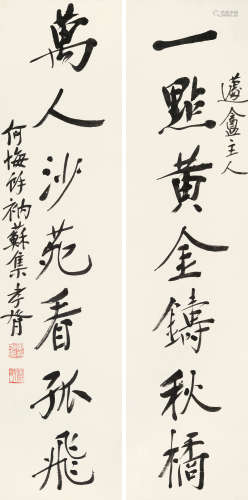 一點黃金鑄秋橘
蘧盦主人
萬人沙苑看孤飛
何悔餘衲蘇集 孝胥